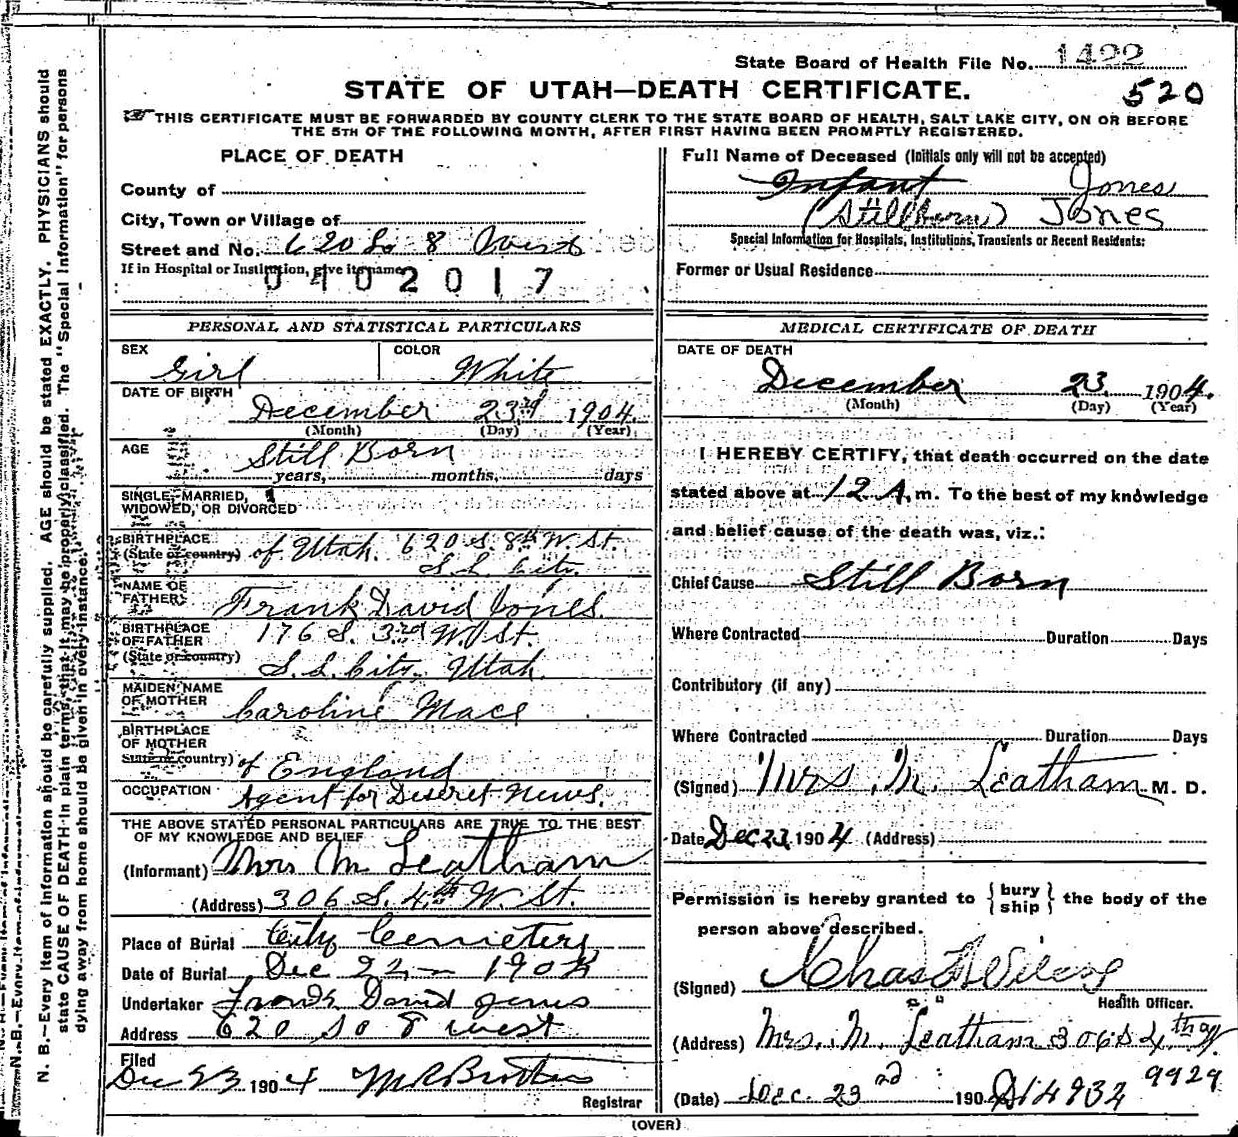 State Board of Health File No. 1422
STATE OF UTAH—DEATH CERTIFICATE.
520
THIS CERTIFICATE MUST BE FORWARDED BY COUNTY CLERK TO THE STATE BOARD OF HEALTH, SALT LAKE CITY, ON OR BEFORE
THE 5TH OF THE FOLLOWING MONTH, AFTER FIRST HAVING BEEN PROMPTLY REGISTERED.
PLACE OF DEATH
County of
City, Town or Village of
Street and No. 620 So 8 West
If in Hospital or Institution, give its name
0402017
Full Name of Deceased (Initials only will not be accepted)
Infant Jones
(Stillborn) Jones
Special Information for Hospitals, Institutions, Transients or Recent Residents:
Former or Usual Residence
PERSONAL AND STATISTICAL PARTICULARS
SEX Girl COLOR White
DATE OF BIRTH December 23rd 1904
(Month) (Day) (Year)
AGE Still Born
years, months, days
SINGLE, MARRIED,
WIDOWED, OR DIVORCED
BIRTHPLACE
(State or country) of Utah. 620 S. 8th W St.
S. L. City.
NAME OF
FATHER Frank David Jones.
BIRTHPLACE
OF FATHER 176 S. 3rd W. St.
(State or country) S. L. City, Utah.
MAIDEN NAME
OF MOTHER Caroline Mace
BIRTHPLACE
OF MOTHER
State or country) of England
OCCUPATION Agent for Deseret News.
THE ABOVE STATED PERSONAL PARTICULARS ARE TRUE TO THE BEST
OF MY KNOWLEDGE AND BELIEF
(Informant) Mrs M Leatham
(Address) 306 S. 4th W. St.
Place of Burial City Cemetery
Date of Burial Dec 1904
Undertaker Frank David Jones
Address 620 So 8 west
Filed
Dec 23 1904
Registrar
MEDICAL CERTIFICATE OF DEATH
DATE OF DEATH
December 23 1904.
(Month) (Day) (Year)
I HEREBY CERTIFY, that death occurred on the date
stated above at 12 A. m. To the best of my knowledge
and belief cause of the death was, viz.:
Chief Cause Still Born
Where Contracted Duration Days
Contributory (if any)
Where Contracted Duration Days
(Signed) Mrs. M. Leatham M. D.
Date Dec 23 1904 (Address)
Permission is hereby granted to { bury
ship } the body of the
person above described.
(Signed) Chas
Health Officer.
(Address) Mrs. M. Leatham 306 S 4th W.
(Date) Dec. 23 190
14932 9929
(OVER)
N. B.—Every item of information should be carefully supplied. AGE should be stated EXACTLY. PHYSICIANS should
state CAUSE OF DEATH in plain terms, that it may be properly classified. The "Special Information" for persons
dying away from home should be given in every instance.